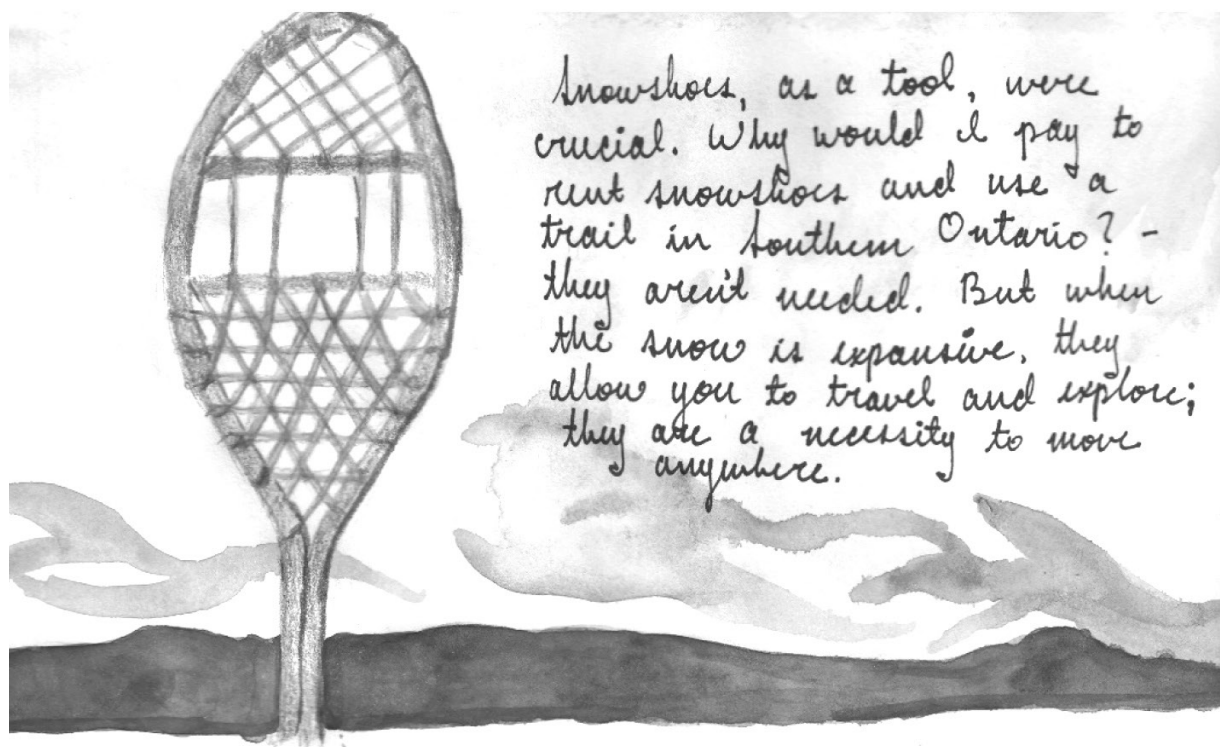 Snowshoes, as a tool, were
crucial. Why would I pay to
rent snowshoes and use a
trail in Southern Ontario? -
they aren't needed. But when
the snow is expansive, they
allow you to travel and explore;
they are a necessity to move
anywhere.